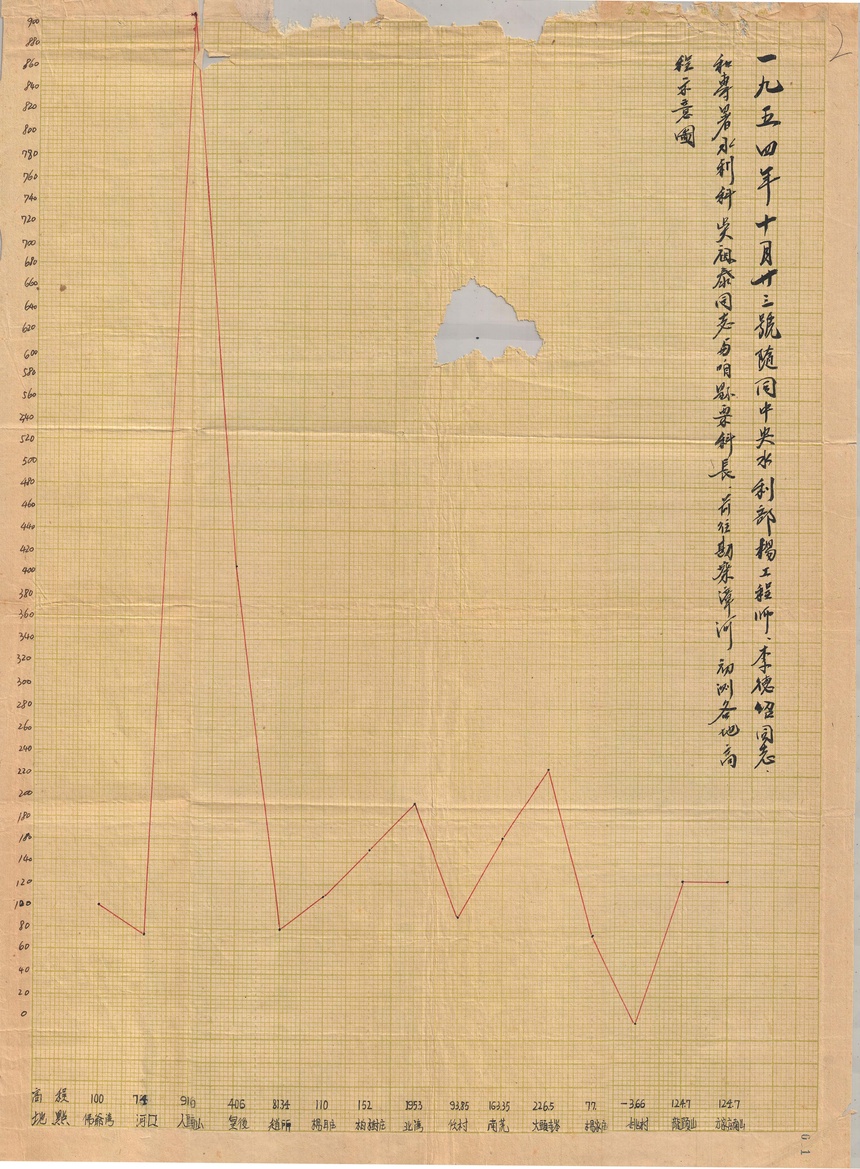 一九五四年十月廿三號隨同中央水利部楊工程师、李德紹同志、
和專署水利科吳祖泰同志与咱县栗科長、前往勘察漳河初測各地高
程示意圖
2
900
880
860
840
820
800
780
760
740
720
700
680
660
640
620
600
580
560
540
520
500
480
460
440
420
400
380
360
340
320
300
280
260
240
220
200
180
160
140
120
100
80
60
40
20
0
高程 100 74 910 406 110 152 93.85 163.35 226.5 77 -3.66 124.7 124.7
地點 河口 趙所 南荒 姚村
61